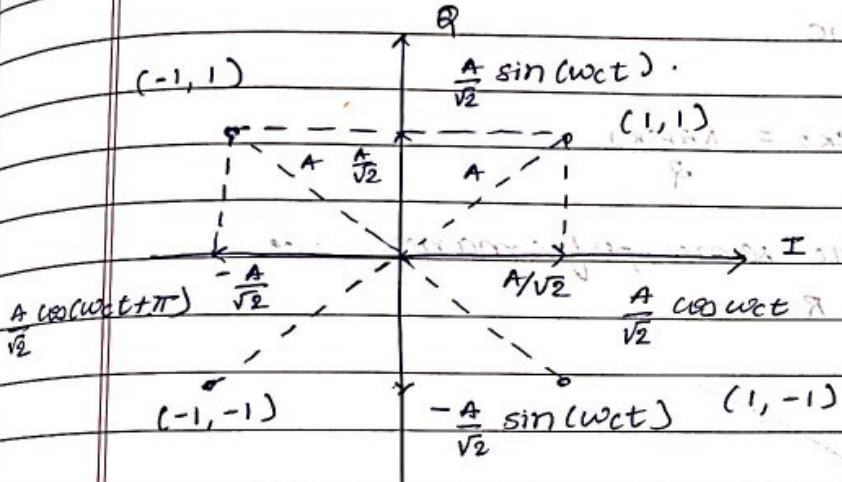 Q
(-1, 1)
A/√2 sin(wct).
(1, 1)
A
A/√2
A
I
-A/√2
A/√2
A/√2 cos(wct+π)
A/√2 cos wct
(-1, -1)
-A/√2 sin(wct)
(1, -1)